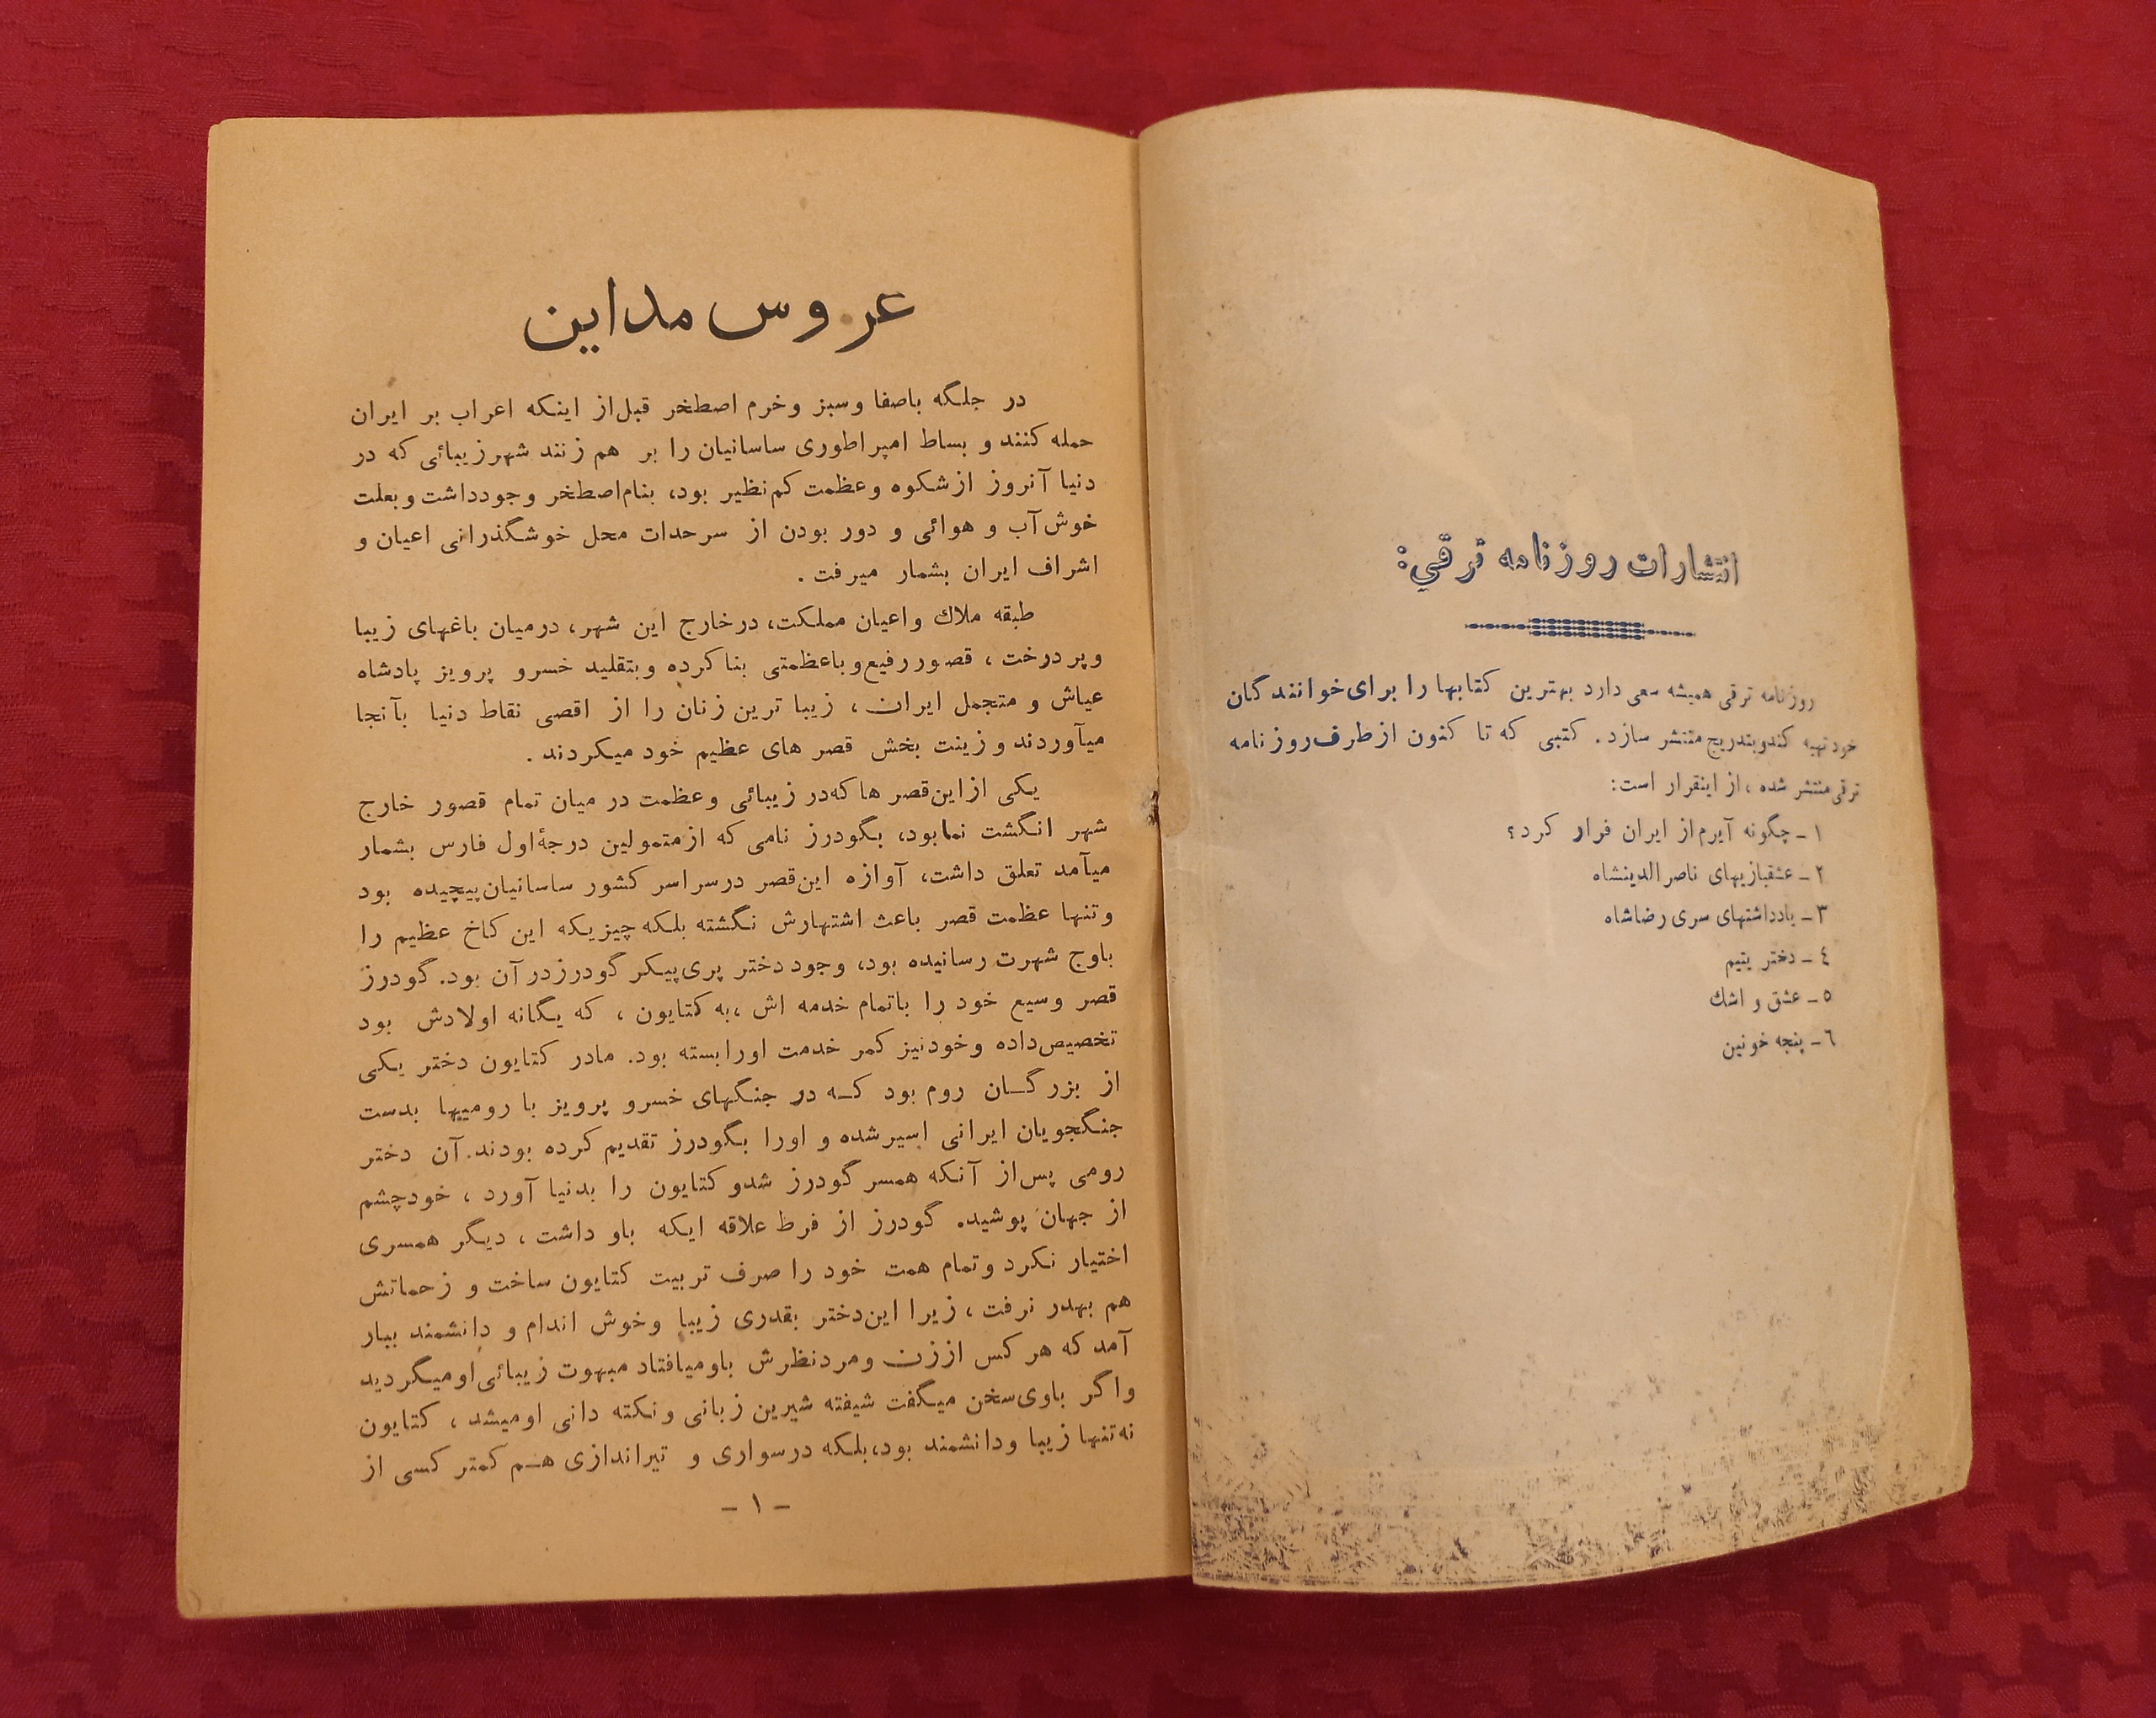 انتشارات روزنامه ترقی:
روزنامه ترقی همیشه سعی دارد بهترین کتابها را برای خوانندگان
خود تهیه کند و بتدریج منتشر سازد. کتبی که تا کنون از طرف روزنامه
ترقی منتشر شده، از اینقرار است:
۱ـ چگونه آیرم از ایران فرار کرد؟
۲ـ عشقبازیهای ناصرالدینشاه
۳ـ یادداشتهای سری رضاشاه
٤ـ دختر یتیم
٥ـ عشق و اشک
٦ـ پنجه خونین
عروس مداین
در جلگه باصفا و سبز و خرم اصطخر قبل از اینکه اعراب بر ایران
حمله کنند و بساط امپراطوری ساسانیان را بر هم زنند شهر زیبائی که در
دنیا آنروز از شکوه و عظمت کم نظیر بود، بنام اصطخر وجود داشت و بعلت
خوش آب و هوائی و دور بودن از سرحدات محل خوشگذرانی اعیان و
اشراف ایران بشمار میرفت.
طبقه ملاك و اعیان مملکت، در خارج این شهر، در میان باغهای زیبا
و پر درخت، قصور رفیع و باعظمتی بنا کرده و بتقلید خسرو پرویز پادشاه
عیاش و متجمل ایران، زیبا ترین زنان را از اقصی نقاط دنیا بآنجا
میآوردند و زینت بخش قصر های عظیم خود میکردند.
یکی از این قصر ها که در زیبائی و عظمت در میان تمام قصور خارج
شهر انگشت نما بود، بگودرز نامی که از متمولین درجهٔ اول فارس بشمار
میآمد تعلق داشت، آوازه این قصر در سراسر کشور ساسانیان پیچیده بود
و تنها عظمت قصر باعث اشتهارش نگشته بلکه چیزیکه این کاخ عظیم را
باوج شهرت رسانیده بود، وجود دختر پری پیکر گودرز در آن بود. گودرز
قصر وسیع خود را باتمام خدمه اش، به کتایون، که یگانه اولادش بود
تخصیص داده و خود نیز کمر خدمت او را بسته بود. مادر کتایون دختر یکی
از بزرگــان روم بود کــه در جنگهای خسرو پرویز با رومیها بدست
جنگجویان ایرانی اسیر شده و او را بگودرز تقدیم کرده بودند. آن دختر
رومی پس از آنکه همسر گودرز شد و کتایون را بدنیا آورد، خود چشم
از جهان پوشید. گودرز از فرط علاقه ایکه باو داشت، دیگر همسری
اختیار نکرد و تمام همت خود را صرف تربیت کتایون ساخت و زحماتش
هم بهدر نرفت، زیرا این دختر بقدری زیبا و خوش اندام و دانشمند ببار
آمد که هر کس از زن و مرد نظرش باو میافتاد مبهوت زیبائی او میگردید
و اگر باوی سخن میگفت شیفته شیرین زبانی و نکته دانی او میشد، کتایون
نه تنها زیبا و دانشمند بود، بلکه در سواری و تیراندازی هــم کمتر کسی از
ـ ۱ ـ